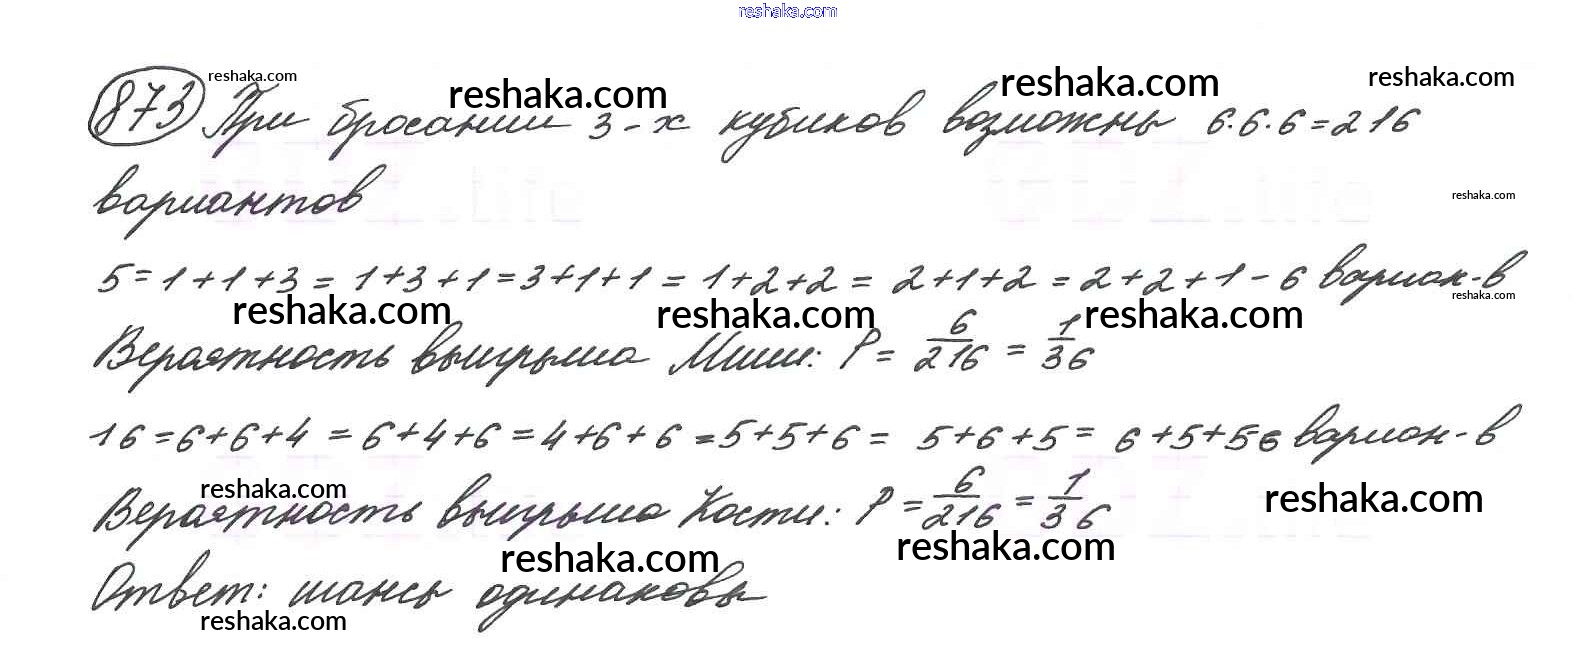 reshaka.com
873 При бросании 3-х кубиков возможны 6·6·6=216
reshaka.com reshaka.com reshaka.com reshaka.com
вариантов
reshaka.com
5=1+1+3=1+3+1=3+1+1=1+2+2=2+1+2=2+2+1-6 вариан-в
reshaka.com reshaka.com reshaka.com reshaka.com
Вероятность выигрыша Миши: P=6/216=1/36
16=6+6+4=6+4+6=4+6+6=5+5+6=5+6+5=6+5+5 6 вариан-в
reshaka.com reshaka.com
Вероятность выигрыша Кости: P=6/216=1/36
reshaka.com reshaka.com
Ответ: шансы одинаковы
reshaka.com